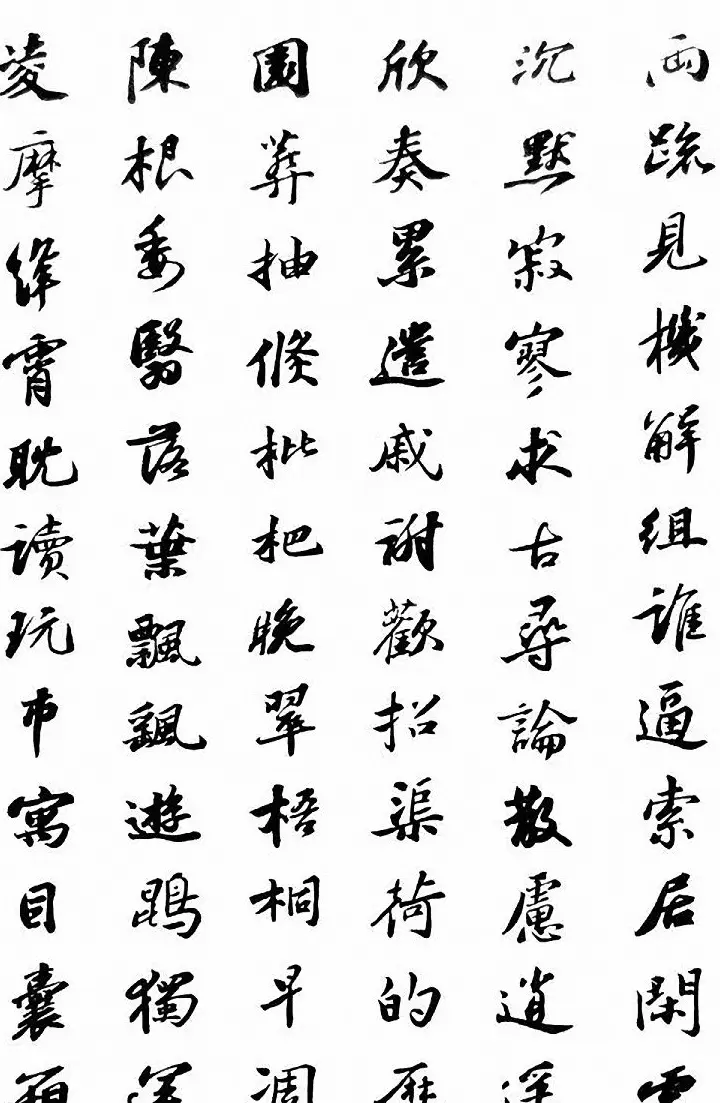 兩疏見機解組誰逼索居閑
沉默寂寥求古尋論散慮逍
欣奏累遣戚謝歡招渠荷的
園莽抽條枇杷晚翠梧桐早凋
陳根委翳落葉飄颻遊鵾獨
凌摩絳霄耽讀玩市寓目囊